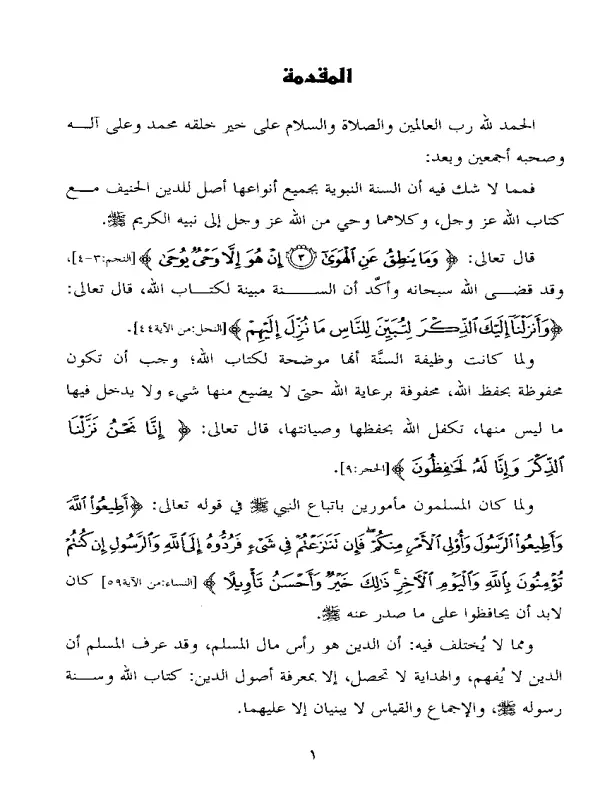 المقدمة
الحمد لله رب العالمين والصلاة والسلام على خير خلقه محمد وعلى آلـــه
وصحبه أجمعين وبعد:
فمما لا شك فيه أن السنة النبوية بجميع أنواعها أصل للدين الحنيف مـــع
كتاب الله عز وجل، وكلاهما وحي من الله عز وجل إلى نبيه الكريم ﷺ.
قال تعالى: ﴿ وَمَا يَنطِقُ عَنِ ٱلْهَوَىٰٓ ﴿٣﴾ إِنْ هُوَ إِلَّا وَحْىٌ يُوحَىٰ ﴾ [النجم:٣-٤]،
وقد قضـــى الله سبحانه وأكّد أن الســـــنة مبينة لكتـــاب الله، قال تعالى:
﴿وَأَنزَلْنَآ إِلَيْكَ ٱلذِّكْرَ لِتُبَيِّنَ لِلنَّاسِ مَا نُزِّلَ إِلَيْهِمْ ﴾ [النحل:من الآية٤٤].
ولما كانت وظيفة السنَّة أنها موضحة لكتاب الله؛ وجب أن تكون
محفوظة بحفظ الله، محفوفة برعاية الله حتى لا يضيع منها شيء ولا يدخل فيها
ما ليس منها، تكفل الله بحفظها وصيانتها، قال تعالى: ﴿ إِنَّا نَحْنُ نَزَّلْنَا
ٱلذِّكْرَ وَإِنَّا لَهُۥ لَحَٰفِظُونَ ﴾ [الحجر:٩].
ولما كان المسلمون مأمورين باتباع النبي ﷺ في قوله تعالى: ﴿أَطِيعُوا۟ ٱللَّهَ
وَأَطِيعُوا۟ ٱلرَّسُولَ وَأُو۟لِى ٱلْأَمْرِ مِنكُمْ ۖ فَإِن تَنَٰزَعْتُمْ فِى شَىْءٍ فَرُدُّوهُ إِلَى ٱللَّهِ وَٱلرَّسُولِ إِن كُنتُمْ
تُؤْمِنُونَ بِٱللَّهِ وَٱلْيَوْمِ ٱلْءَاخِرِ ۚ ذَٰلِكَ خَيْرٌ وَأَحْسَنُ تَأْوِيلًا ﴾ [النساء:من الآية٥٩] كان
لابد أن يحافظوا على ما صدر عنه ﷺ.
ومما لا يُختلف فيه: أن الدين هو رأس مال المسلم، وقد عرف المسلم أن
الدين لا يُفهم، والهداية لا تحصل، إلا بمعرفة أصول الدين: كتاب الله وسـنة
رسوله ﷺ، والإجماع والقياس لا يبنيان إلا عليهما.
١